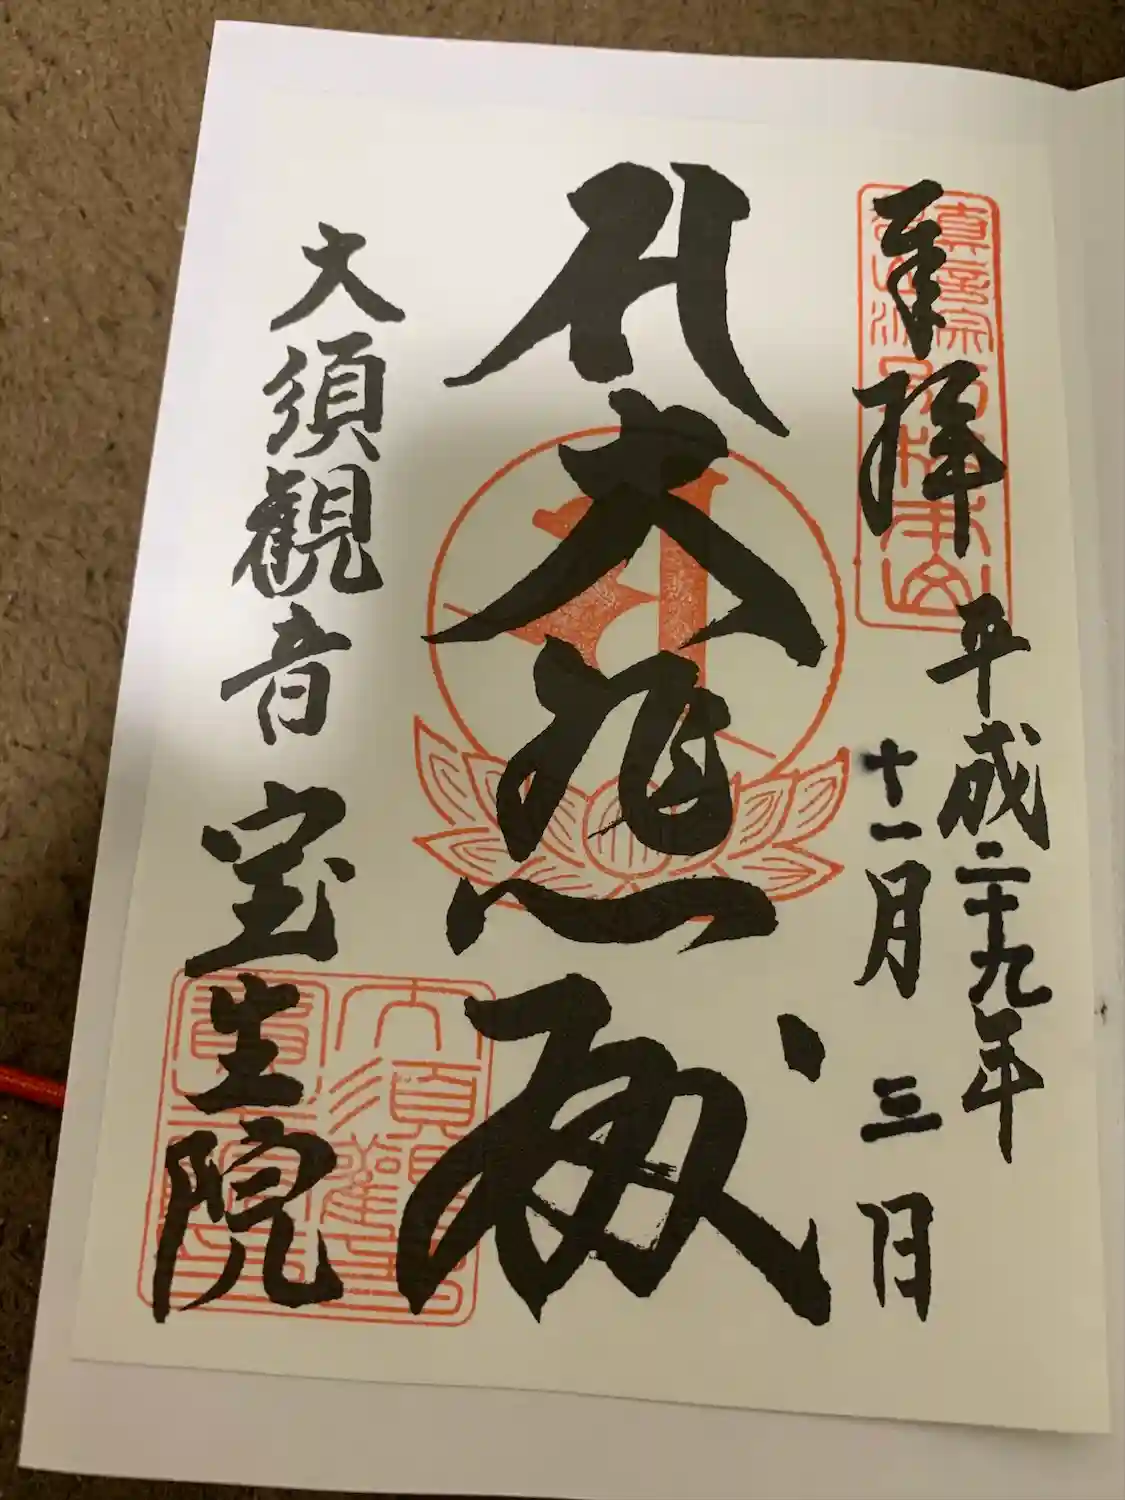 奉拝
平成二十九年
十一月三日
大悲殿
大須観音 宝生院